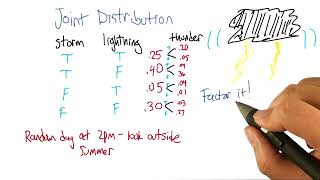 Joint Distribution
storm lightning thunder
T T .25 < .20 .05
T F .40 < .04 .36
F T .05 < .04 .01
F F .30 < .03 .27
Random day at 2pm - look outside
summer
Factor it!